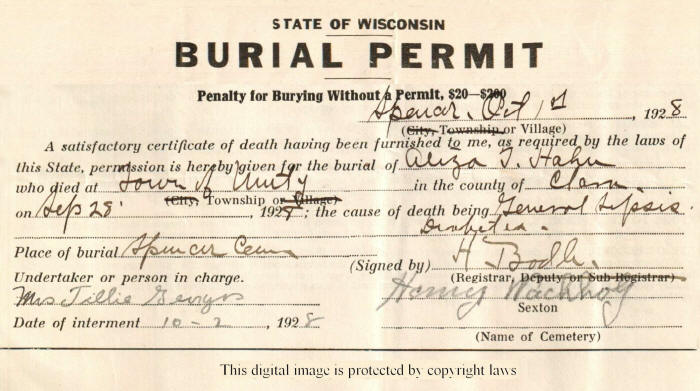 STATE OF WISCONSIN
BURIAL PERMIT
Penalty for Burying Without a Permit, $20—$200
Spencer, Oct 1st, 1928
(City, Township or Village)
A satisfactory certificate of death having been furnished to me, as required by the laws of
this State, permission is hereby given for the burial of T. Hahn
who died at Town of Unity in the county of Clark
(City, Township or Village)
on Sep 28 , 1928; the cause of death being General Sepsis.
Diabetes.
Place of burial Spencer Cem
(Signed by) H
Undertaker or person in charge.
(Registrar, Deputy or Sub-Registrar)
Mrs Tillie
Henry
Sexton
Date of interment 10-2, 1928
(Name of Cemetery)
This digital image is protected by copyright laws